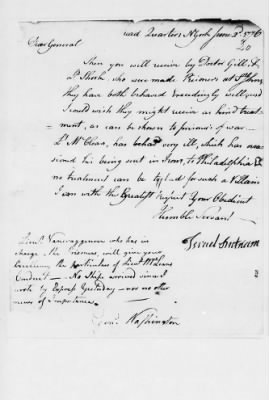 Head Quarters N York June 2d 1776
20
Dear General
Then you will receive by Doctor Gill &
Lt. who were made Prisoners at St. Johns
they have both behaved exceedingly well, and
I could wish they might receive as kind treat-
ment, as can be shown to prisoners of war —
Lt. McClean, has behaved very ill, which has occa
sioned his being sent in Irons, to Philadelphia &
no treatment can be too bad for such a Villain
I am with the Greatest respect Your Obedient
Humble Servant
Israel Putnam
who has in
charge, the Prisoners, will give your
the particulars of Lieut. McLeans
Conduct — No Ships arrived since I
wrote by Express Yesterday — nor no other
news of importance.
Genl. Washington